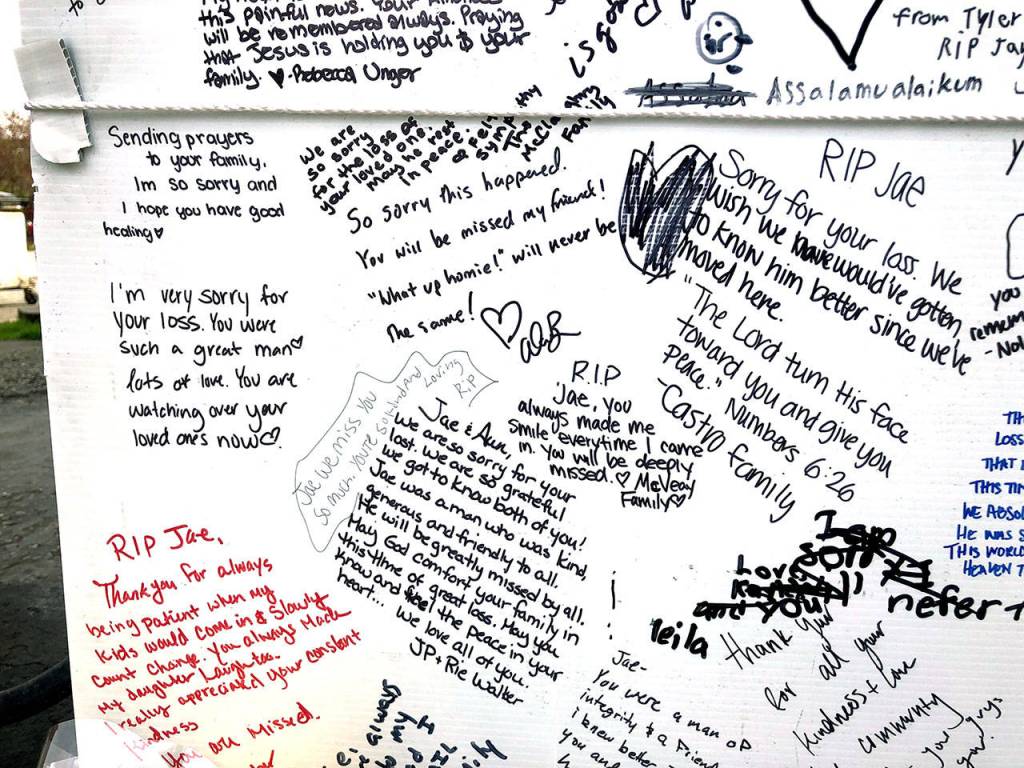 this painful news. Your
will be remembered always. Praying
that Jesus is holding you & your
family. ♥ -Rebecca Unger
from Tyler
RIP Jay
Assalamualaikum
Sending prayers
to your family.
Im so sorry and
I hope you have good
healing♡
We are
so sorry
for the loss of
your loved one.
May he rest
in peace.
The
Family
So sorry this happened.
You will be missed my friend!
"What up homie!" will never be
the same!
RIP Jae
Sorry for your loss. We
wish we would've gotten
to know him better since we've
moved here.
"The Lord turn His face
toward you and give you
peace." Numbers 6:26
-Castro family
you
remem
-Nol
I'm very sorry for
your loss. You were
such a great man♡
lots of love. You are
watching over your
loved ones now♡.
Jae we miss you
so much. You're so kind and
Loving
R.i.P
R.I.P
Jae, you
always made me
smile everytime I came
in. You will be deeply
missed. ♡ McVeay
Family♡
Jae & Aun,
We are so sorry for your
lost. We are so grateful
we got to know both of you!
Jae was a man who was kind,
generous and friendly to all.
He will be greatly missed by all.
May God comfort your family in
this time of great loss. May you
know and feel the peace in your
heart... We love all of you.
JP + Rie Walter
TH
LOSS
THAT
THIS TIN
WE ABSOL
HE WAS S
THIS WORLD
HEAVEN T
RIP Jae,
Thankyou for always
being patient when my
kids would come in & Slowly
count change. You always Made
my daughter Laugh too.
I really appreciated your constant
kindness
You are Missed.
I am
sory
Love
and you
nefer
leila
Thank you
for all your
kindness + love
community
you guys
Jae-
You were a man of
integrity & a Friend
i knew better
you and
always
to my